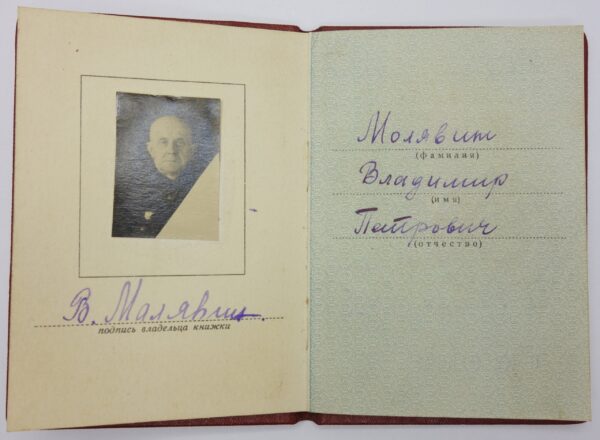 В. Малявин.
подпись владельца книжки
Молявин
(фамилия)
Владимир
(имя)
Петрович
(отчество)